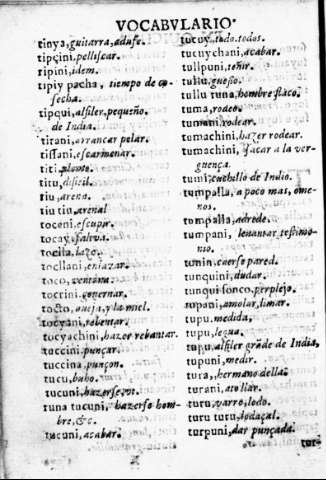 VOCABVLARIO.
tinya, guitarra, adufe.
tipçini, pelliscar.
ripini, idem.
tipiy pacha, tiempo de co
secha.
tipqui, alfiler, pequeño
de India.
titani, arrancar pelar.
tissani, escarmenar.
titi, plomo.
titu, dificil.
tiu, arena.
tiu tiu, arenal
toccni, escupir.
tocay, saliva.
toclla, lazo.
tocllani, enlazar.
toco, ventana.
tocrini, gouernar.
tocto, aueja, y la miel.
tocyani, rebentar.
tocyachini, hazer rebentar.
tuccini, punçar.
tuccina, punçon.
tucu, buho.
tucuni, hazerse, vt.
runa tucuni, hazerse hom-
bre, &c.
tucuni, acabar.
tucuy, todo, todos.
tucuychani, acabar.
tullpuni, teñir.
tullu, guesso.
tullu runa, hombre flaco.
tuma, rodeo.
tumani, rodear.
tumachini, hazer rodear.
tumachini, sacar a la ver-
guença.
tumi, cuchillo de Indio.
tumpalla, a poco mas, ome-
nos.
tumpalla, adrede.
tumpani, leuantar testimo-
nio.
tunin, caerse pared.
tunquini, dudar.
tunqui sonco, perplejo.
tupani, amolar, limar.
tupu, medida.
tupu, legua.
tupu, alfiler grãde de India.
tupuni, medir.
tura, hermano della.
turani, atollar.
turu, varro, lodo.
turu turu, lodaçal.
turpuni, dar punçada.
tur-